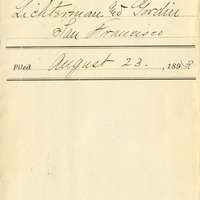 Lichterman & Gordin
San Francisco
Filed August 23. , 1893